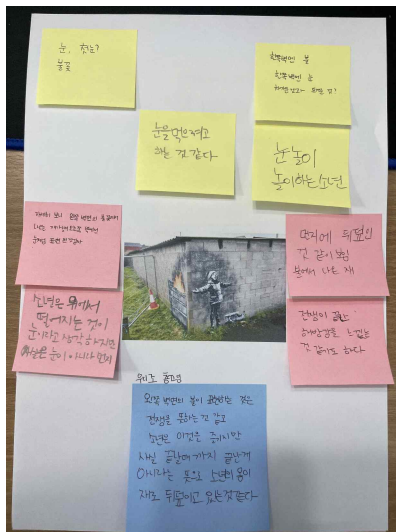 눈, 첫눈?
불꽃
한쪽벽면 불
한쪽벽면 눈
눈을 먹으려고
하는 것 같다
눈놀이
놀이하는 소년
먼지에 뒤덮인
것 같이 보임
불에서 나는 재
소년은 위에서
떨어지는 것이
눈이라고 생각하지만
사실은 눈이 아니라 먼지
전쟁이 끝난
해방감을 느끼는
것 같이도 하다
왼쪽 벽면의 불이 뜻하는 것은
전쟁을 뜻하는 것 같고
소년은 이것을 즐기지만
사실 끝날때까지 끝난게
아니라는 뜻으로 소년의 몸이
재로 뒤덮이고 있는것 같다